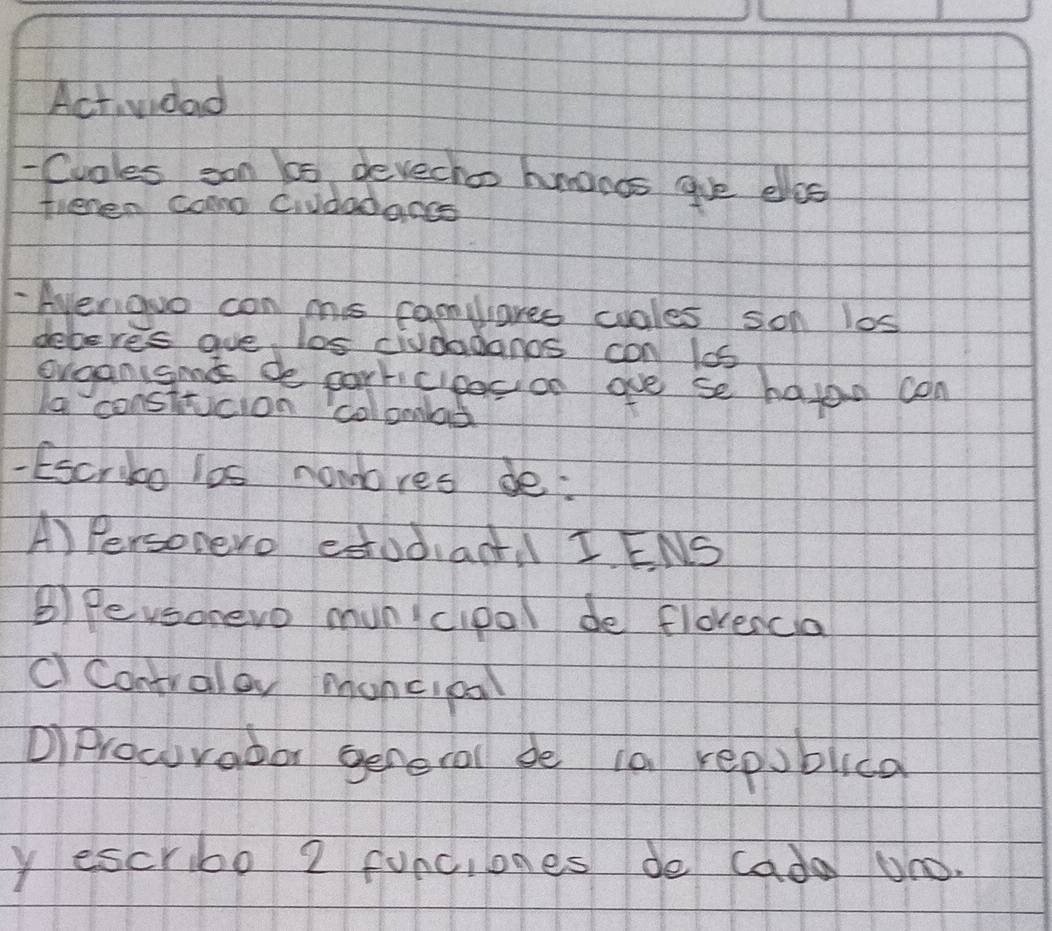 Actividad
-Cuales son los derechos humanos que ellos
tienen como ciudadanos
-Averiguo con mis familiares cuales son los
deberes que los ciudadanos con los
organismos de participacion que se hayan con
la constitucion colombab
-Escribo los nombres de:
A) Personero estudiantil I.E.N.S
B) Personero municipal de florencia
C) Contralor muncipal
D) Procurador general de la republica
y escribo 2 funciones de cada uno.